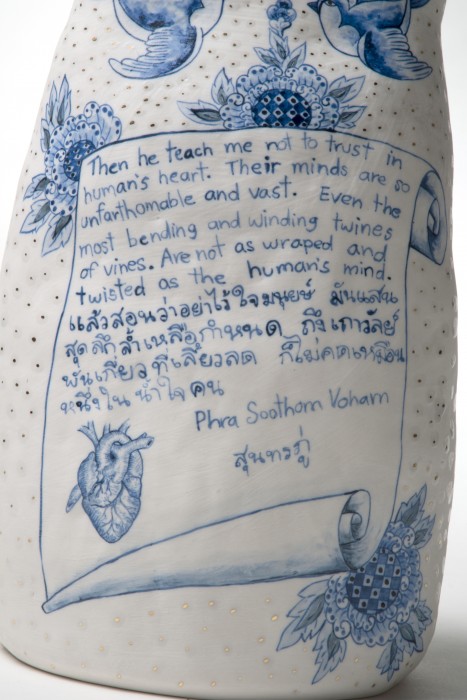 Then he teach me not to trust in
human's heart. Their minds are so
unfarthomable and vast. Even the
most bending and winding twines
of vines. Are not as wraped and
twisted as the human's mind.
แล้วสอนว่าอย่าไว้ใจมนุษย์ มันแสน
สุดลึกล้ำเหลือกำหนด ถึงเถาวัลย์
พันเกี่ยวที่เลี้ยวลด ก็ไม่คดเหมือน
หนึ่งในน้ำใจคน
Phra Soothorn Voharn
สุนทรภู่